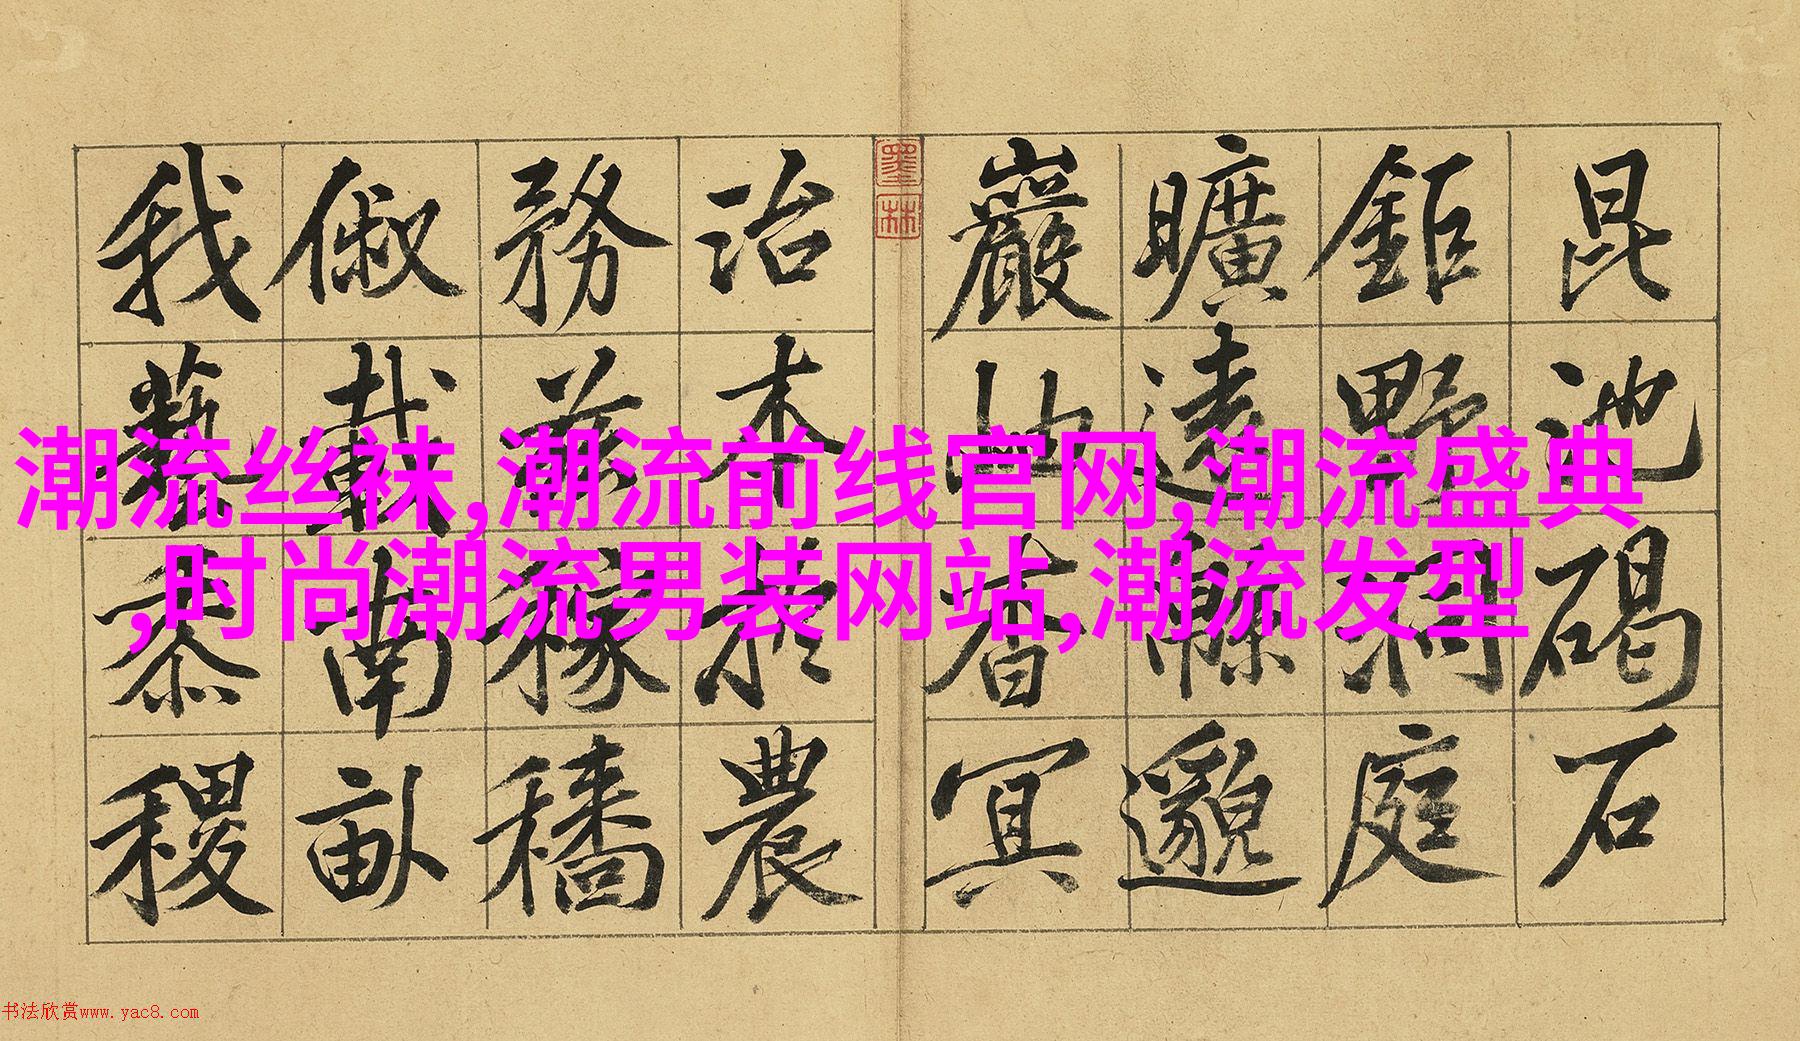 昆池碣石
鉅野洞庭
曠遠緜邈
巖岫杳冥
墨林
治本於農
務茲稼穡
俶載南畝
我藝黍稷
潮流丝袜,潮流前线官网,潮流盛典
,时尚潮流男装网站,潮流发型
书法欣赏www.yac8.com